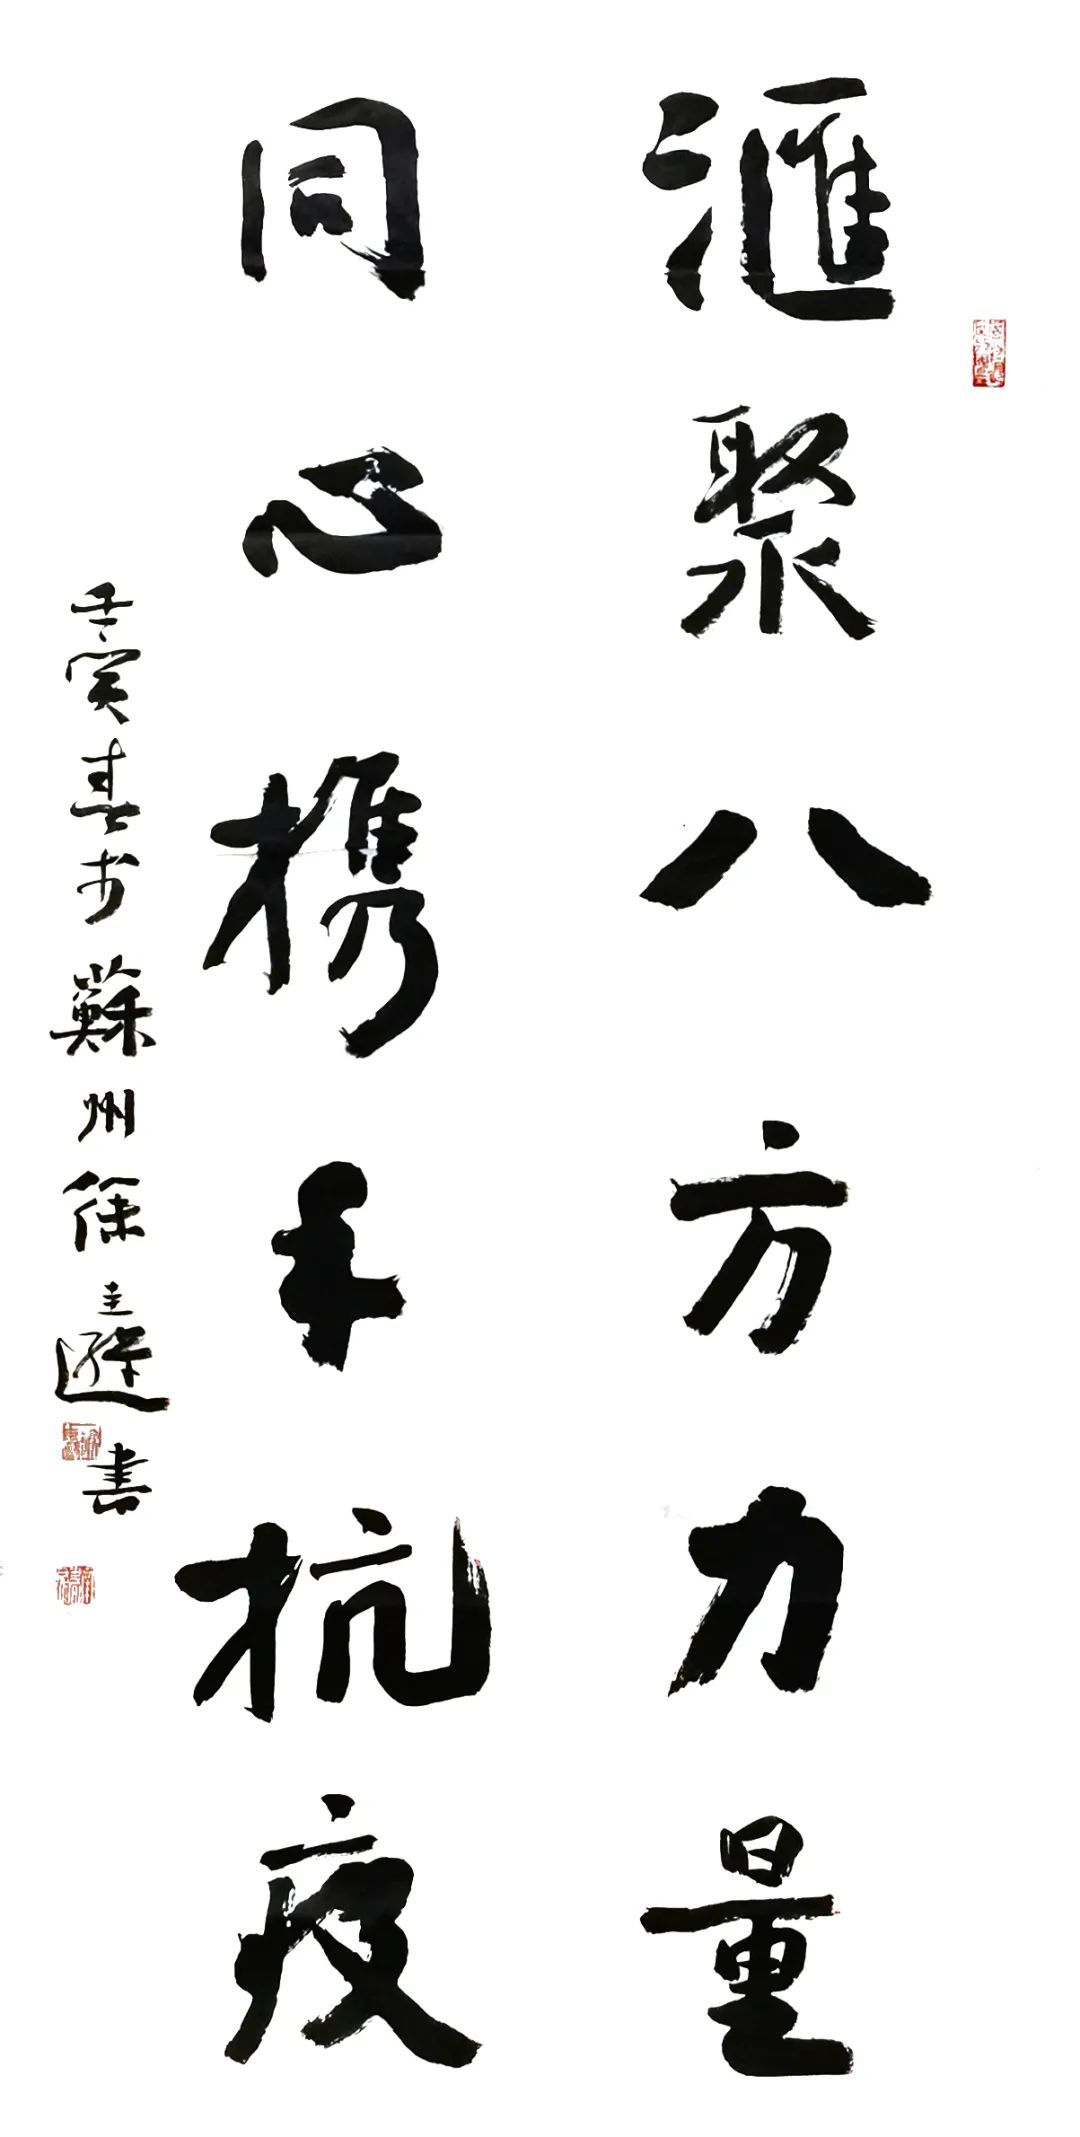 滙聚八方力量
同心携手抗疫
壬寅春於蘇州徐圭逰書